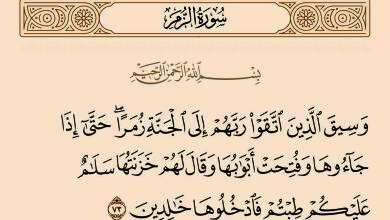 سُورَةُ الزُّمَرِ
بِسْمِ ٱللَّهِ ٱلرَّحْمَٰنِ ٱلرَّحِيمِ
وَسِيقَ ٱلَّذِينَ ٱتَّقَوْا۟ رَبَّهُمْ إِلَى ٱلْجَنَّةِ زُمَرًا ۖ حَتَّىٰٓ إِذَا
جَآءُوهَا وَفُتِحَتْ أَبْوَٰبُهَا وَقَالَ لَهُمْ خَزَنَتُهَا سَلَٰمٌ
عَلَيْكُمْ طِبْتُمْ فَٱدْخُلُوهَا خَٰلِدِينَ ٧٣